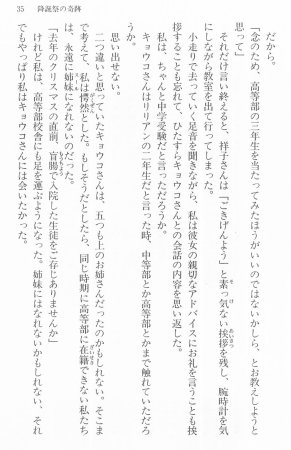 35　降誕祭の奇跡
だから。
「念のため、高等部の三年生を当たってみたほうがいいのではないかしら、とお教えしようと
思って」
それだけ言い終えると、祥子さんは「ごきげんよう」と素っ気ない挨拶を残し、腕時計を気
にしながら教室を出て行ってしまった。
小走りで去っていく足音を聞きながら、私は彼女の親切なアドバイスにお礼を言うことも挨
拶することも忘れて、ひたすらキョウコさんとの会話の内容を思い返した。
私は、ちゃんと中学受験だと言っただろうか。
キョウコさんはリリアンの二年生だと言った時、中等部とか高等部とかまで触れていただろ
うか。
思い出せない。
二つ違いと思っていたキョウコさんは、五つも上のお姉さんだったのかもしれない。そこま
で考えて、私は愕然とした。もしそうだとしたら、同じ時期に高等部に在籍できない私たち
は、永遠に姉妹になれないのだった。
「去年のクリスマスの直前、盲腸で入院した生徒をご存じありませんか」
けれど私は、高等部校舎にも足を運ぶようになった。姉妹にはなれないかもしれない、それ
でもやっぱり私はキョウコさんには会いたかった。